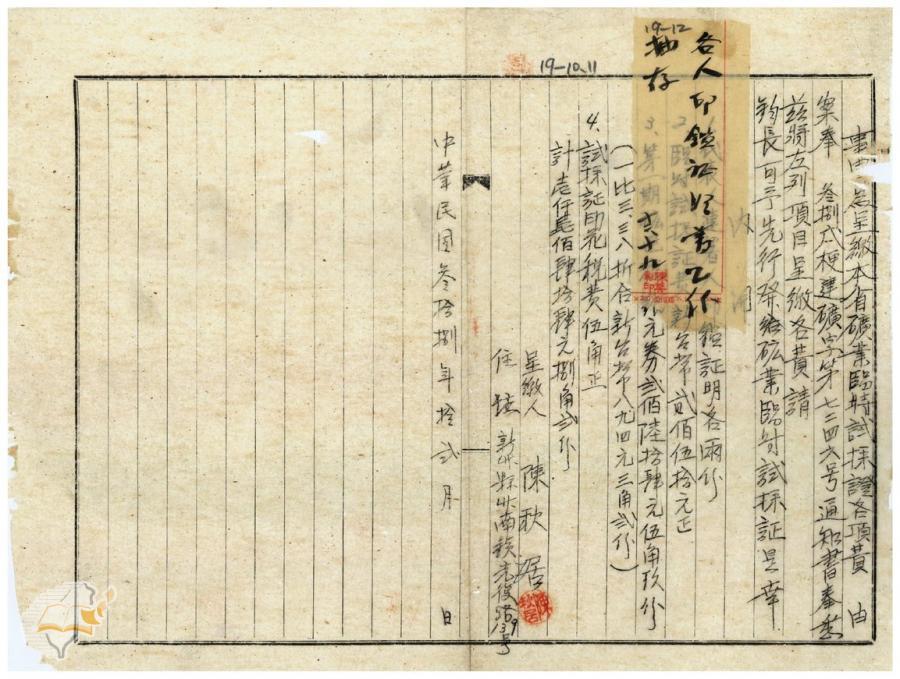 事由為呈繳本省礦業臨時試採證各項費 由
案奉 叁捌亥梗建礦字第七二四六号通知書奉悉
茲將左列項目呈繳各費請
鈞長 可予先行發給矿業臨時試採証是幸
內開
印鑑証明各兩份
2. 臨時試採証費新台幣貳佰伍拾元正
3. 第一期 元券貳佰陸拾肆元伍角玖分
(一比三.三八折合新台幣八九四元三角貳分)
4. 試採証印花税費伍角正
計壱仟壱佰肆拾肆元捌角貳分
呈繳人 陳秋居
住址 新竹縣竹南鎮光復路
中華民國叁拾捌年拾貳月 日
19-12
各人印鑑証明書乙份
抽存
19-10.11
陳秋居